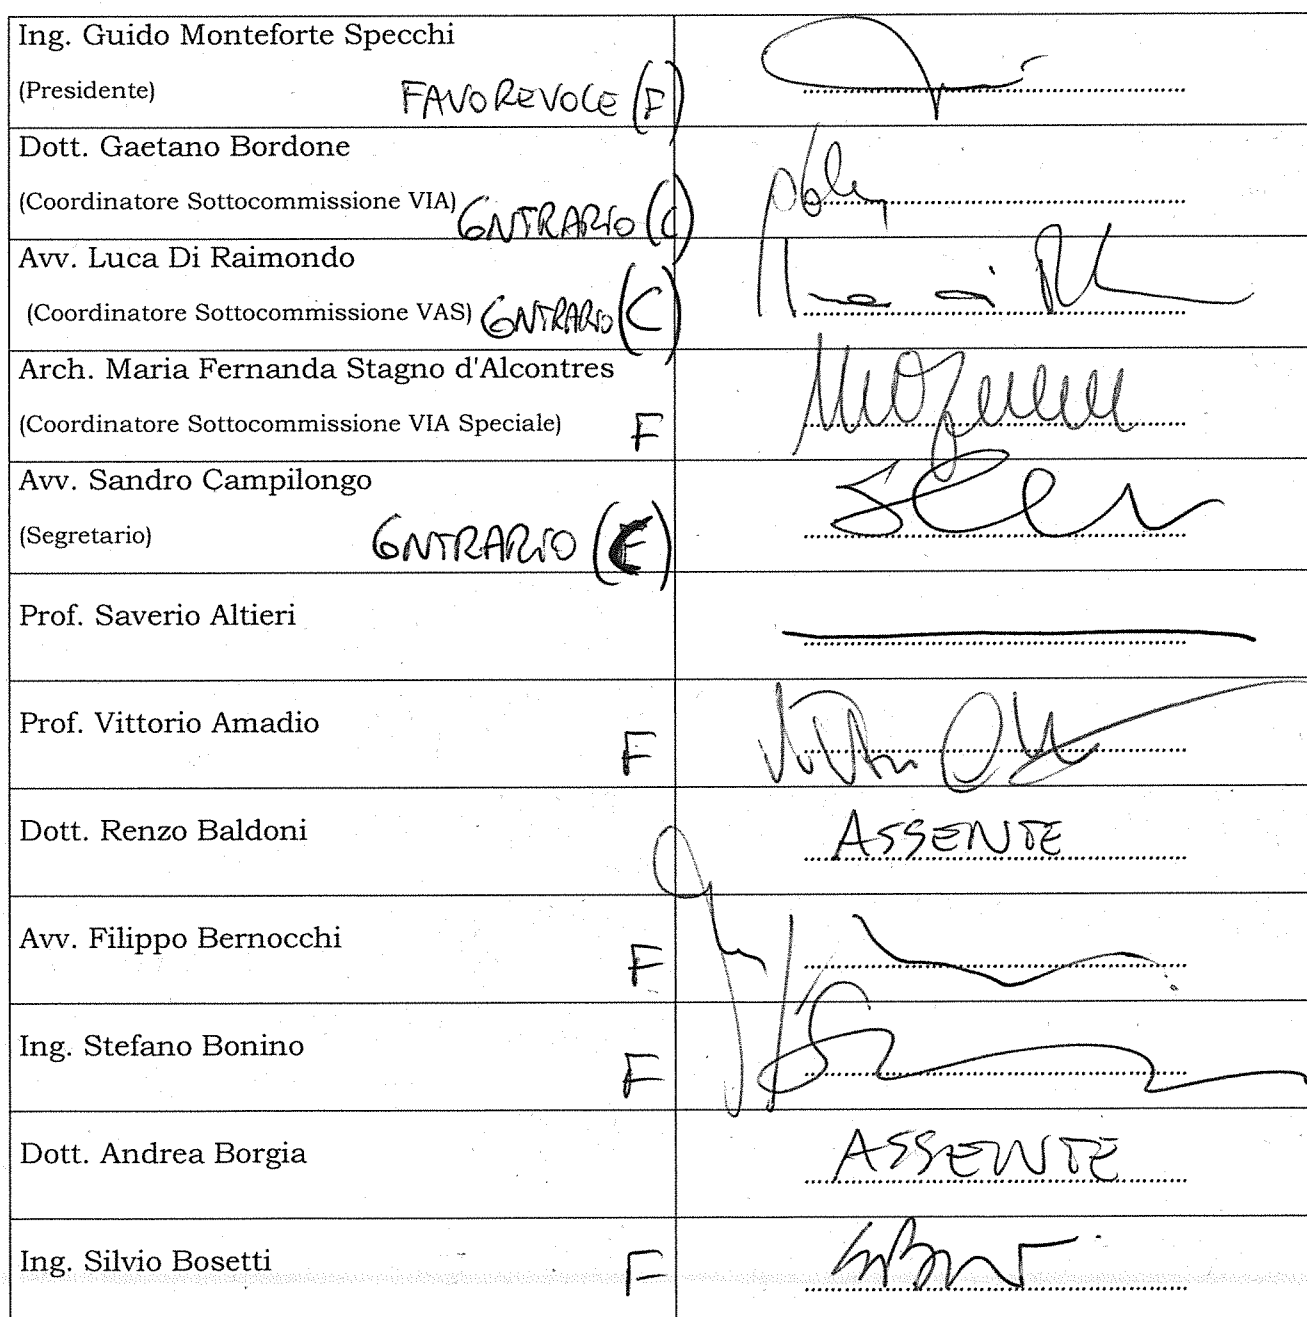 Ing. Guido Monteforte Specchi
(Presidente) FAVOREVOLE (F)
Dott. Gaetano Bordone
(Coordinatore Sottocommissione VIA) CONTRARIO (C)
Avv. Luca Di Raimondo
(Coordinatore Sottocommissione VAS) CONTRARIO (C)
Arch. Maria Fernanda Stagno d'Alcontres
(Coordinatore Sottocommissione VIA Speciale) F
Avv. Sandro Campilongo
(Segretario) CONTRARIO (C)
Prof. Saverio Altieri
Prof. Vittorio Amadio F
Dott. Renzo Baldoni ASSENTE
Avv. Filippo Bernocchi F
Ing. Stefano Bonino F
Dott. Andrea Borgia ASSENTE
Ing. Silvio Bosetti F